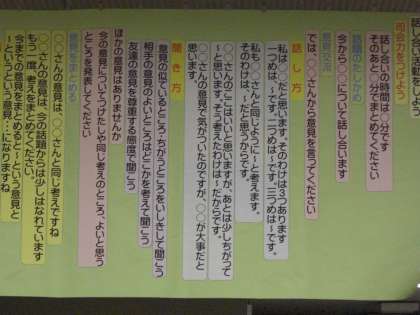 話し合い活動をし
司会力をつけよう
話し合いの時間は○分です
そのあと○分でまとめてください
話題のたしかめ
今から○○について話し合います
意見交流
では、○○さんから意見を言ってください
話し方
私は○○だと思います。そのわけは3つあります
一つめは、~です。二つめは~です。三つめは~です。
私も○○さんと同じように~と考えます。
そのわけは、~だと思うからです。
○○さんのここはいいと思いますが、あとは少しちがって
~と思います。そう考えたわけは~だからです。
○○さんの意見で気がついたのですが、○○が大事だと
思います。
聞き方
意見の似ているところ・ちがうところをいしきして聞こう
相手の意見のよいところはどこかを考えて聞こう
友達の意見を尊重する態度で聞こう
ほかの意見はありませんか
今の意見についてつけたしや同じ考えのところ、よいと思う
ところを発表してください
意見をまとめる
○○さんの意見は、○○さんと同じ考えですね
○○さんの意見は、今の話題からは少しはなれています
もう一度、考えをまとめてください。
今までの意見をまとめると~という意見と
~というという意見…になりますね